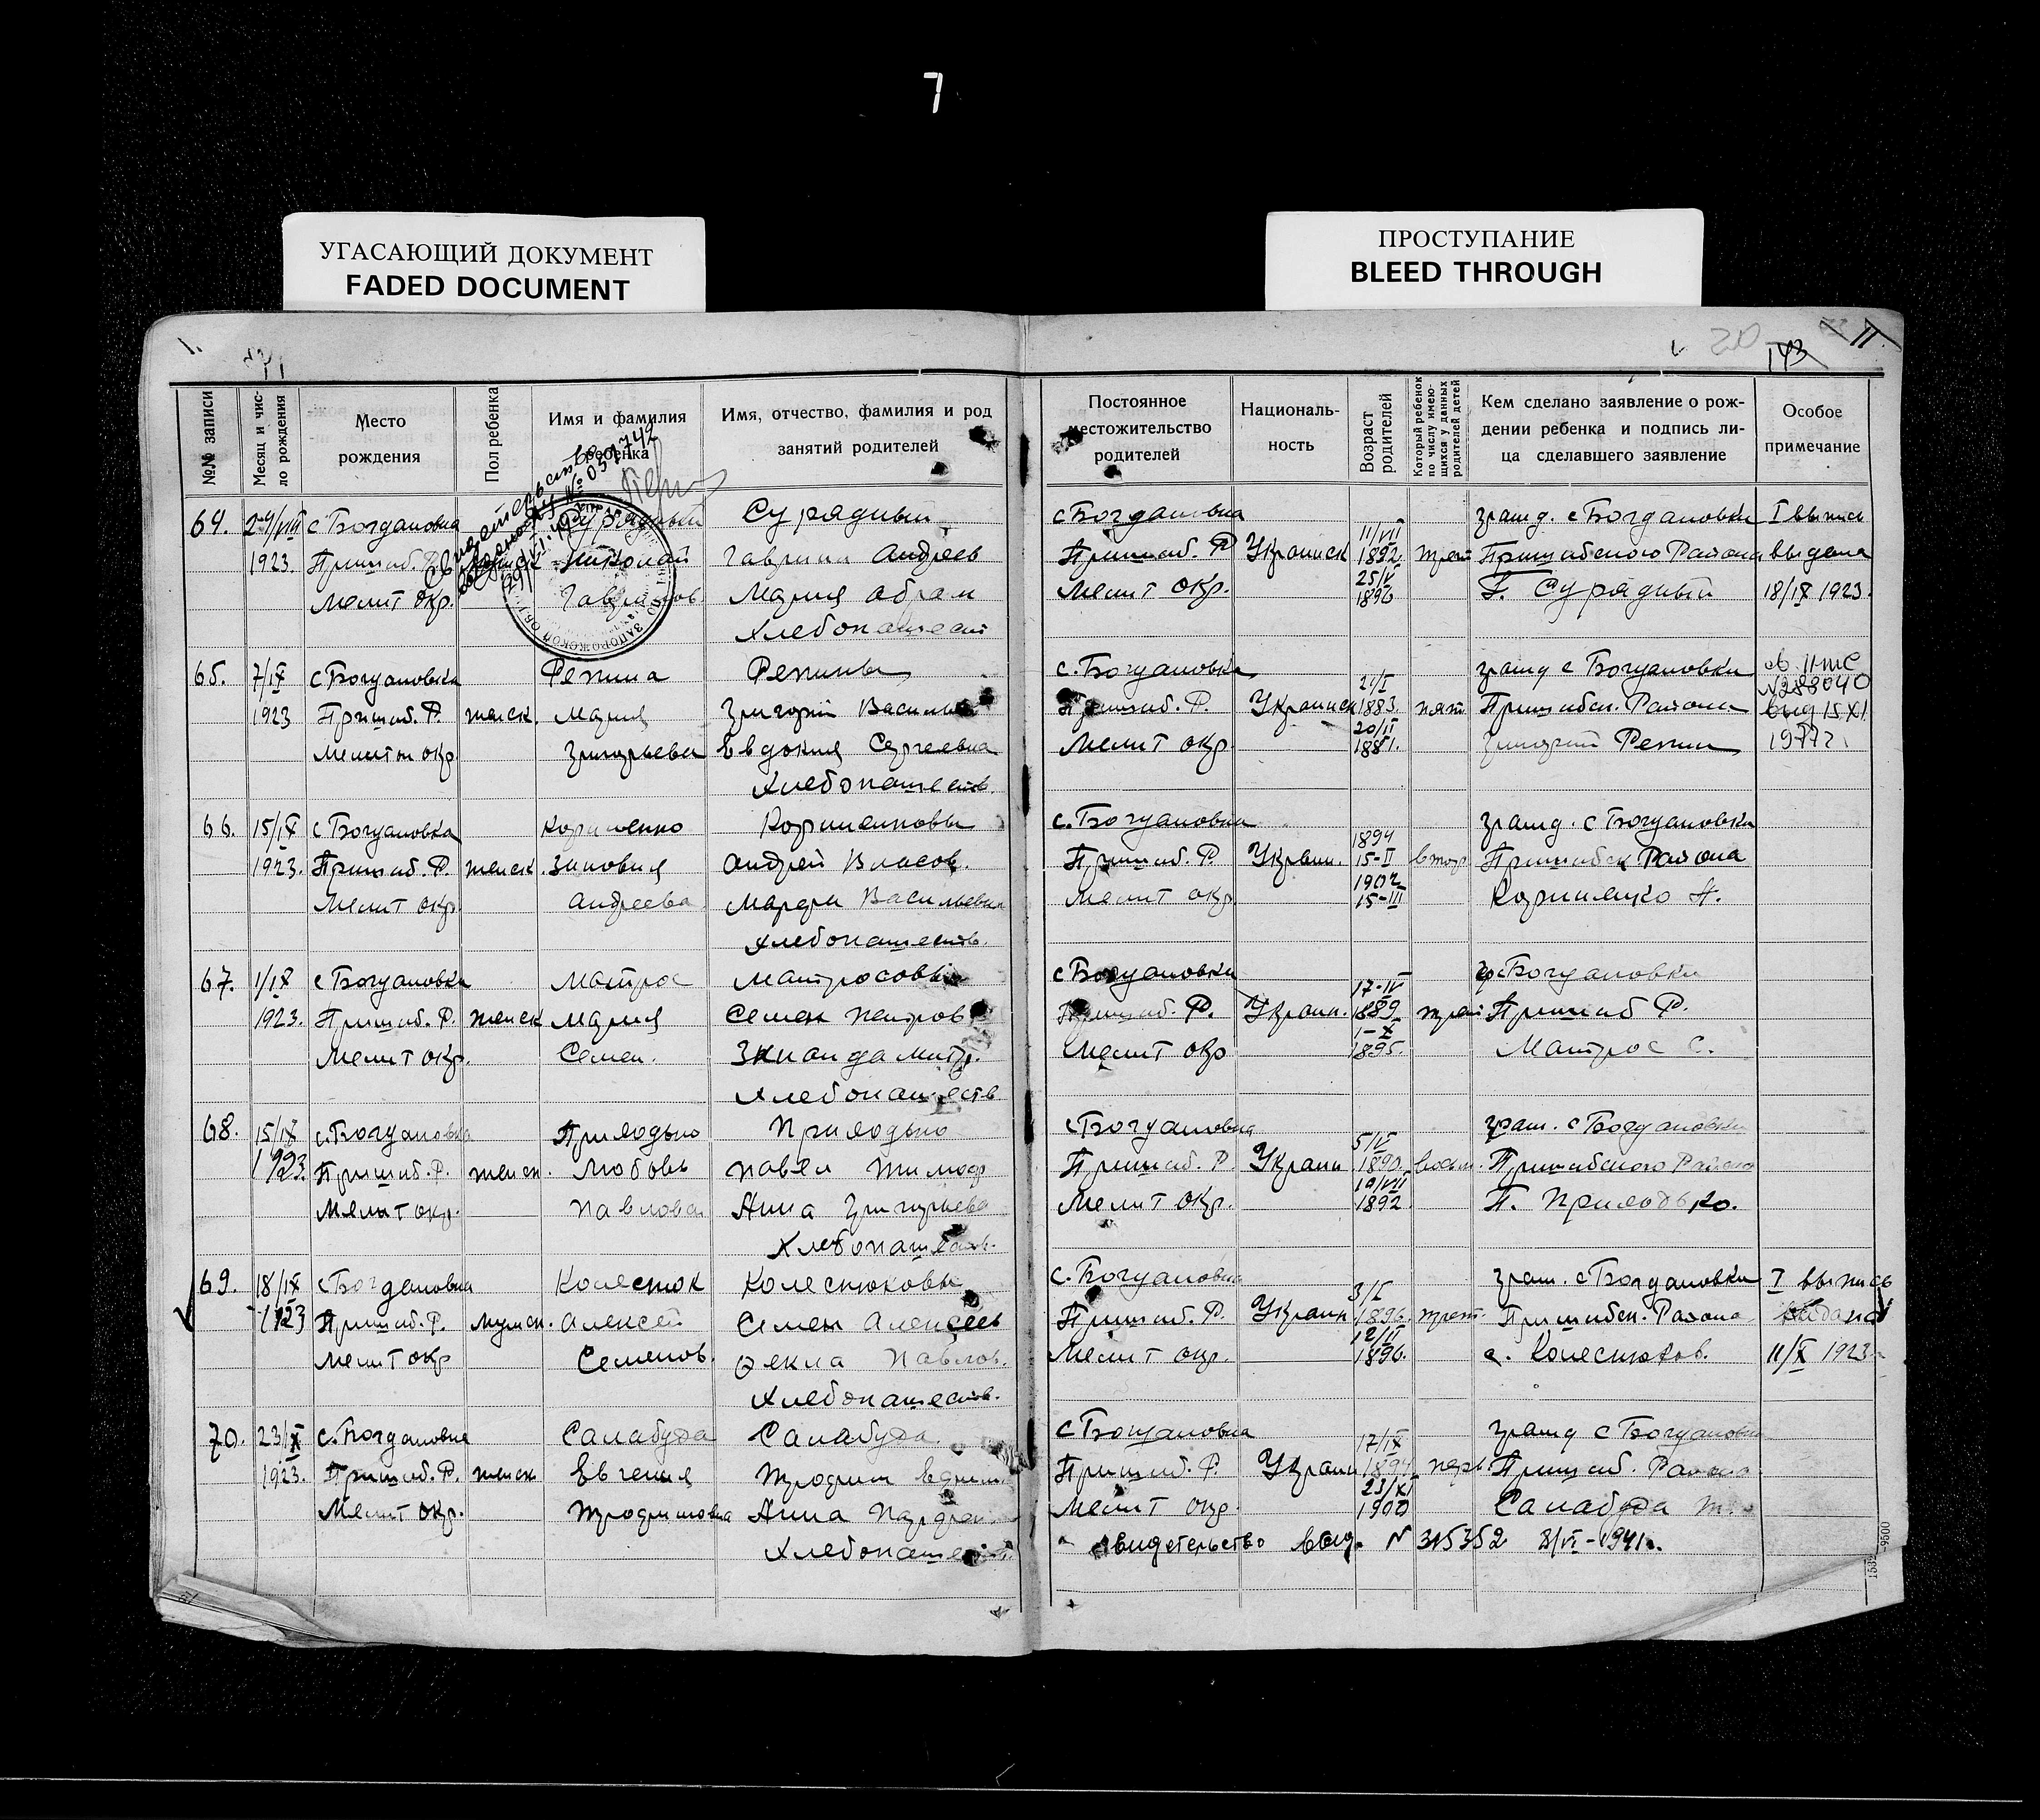 7
УГАСАЮЩИЙ ДОКУМЕНТ
FADED DOCUMENT
ПРОСТУПАНИЕ
BLEED THROUGH
20
143
11
№№ записи
Месяц и чис-
ло рождения
Место
рождения
Пол ребенка
Имя и фамилия
ребенка
Имя, отчество, фамилия и род
занятий родителей
Постоянное
местожительство
родителей
Националь-
ность
Возраст
родителей
Который ребенок
по числу имею-
щихся у данных
родителей детей
Кем сделано заявление о рож-
дении ребенка и подпись ли-
ца сделавшего заявление
Особое
примечание
№ 037742
64. 24/VIII с Богдановка Сурядный Сурядный с Богдановка 11/VII гражд. с Богдановки I выпись
1923. Пришиб. Р. Николай Гаврил Андреев Пришиб. Р Украинск 1892 трет Пришибского Района выдана
Мелит окр. Гаврилов Мария Абрам Мелит окр. 25/V 1896 Г. Сурядный 18/IX 1923.
Хлебопашест
65. 7/IX с Богдановка Репина Репины с. Богдановка 21/I гражд с Богдановки
1923 Пришиб. Р. женск. Мария Григорий Васильев Пришиб. Р. Украинск 1883. пят Пришибск. Района №288040 выд 15 XI
Мелитоп окр. Григорьевна Евдокия Сергеевна Мелит окр. 20/II 1881. Григорий Репин 1977г
Хлебопашеств.
66. 15/IX с Богдановка Корниенко Корниенковы с. Богдановка 1894 гражд. с Богдановки
1923. Пришиб. Р. женск. Зиновия Андрей Власов. Пришиб. Р. Украин. 15-II втор Пришибск Района
Мелит окр Андреева Марфа Васильевна Мелит окр 1902 15-III Корниенко А.
Хлебопашеств.
67. 1/IX с Богдановка Матрос Матросовы с Богдановки 17-IV гр с Богдановки
1923. Пришиб. Р. женск Мария Семен Петров Пришиб. Р. Украин. 1889 трет Пришиб Р.
Мелит окр. Семен. Мелит окр 1-X 1895. Матрос С.
Хлебопашеств
68. 15/IX с. Богдановка Приходько Приходько с Богдановка 5/VI граж. с Богдановки
1923. Пришиб. Р. женск. Любовь Павел Тимоф Пришиб. Р Украин 1890. Пришибского Района
Мелит окр. Павловна Анна Григорьева Мелит окр. 19/VII 1892 П. Приходько.
Хлебопашеств.
69. 18/IX с Богдановка Колеснюк Колеснюковы с. Богдановка 3/I граж. с Богдановки I выпись
1923 Пришиб. Р. мужск. Алексей Семен Алексеев Пришиб. Р. Украин 1896. трет. Пришибск. Района выдана
Мелит окр Семенов. Фекла Павлов. Мелит окр. 12/II 1896. Колеснюков. 11/X 1923
Хлебопашеств.
70. 23/X с. Богдановка Салабуда Салабуда с Богдановка 17/IX гражд с Богдановки
1923. Пришиб. Р. женск Евгения Трофим Пришиб. Р. Украин 1894 перв. Пришиб. Района
Мелит окр. Трофимовна Анна Парфен. Мелит окр. 23/XI 1900 Салабуда Т.
Хлебопашест
свидетельство выд. N 315352 8/VI-1941г.